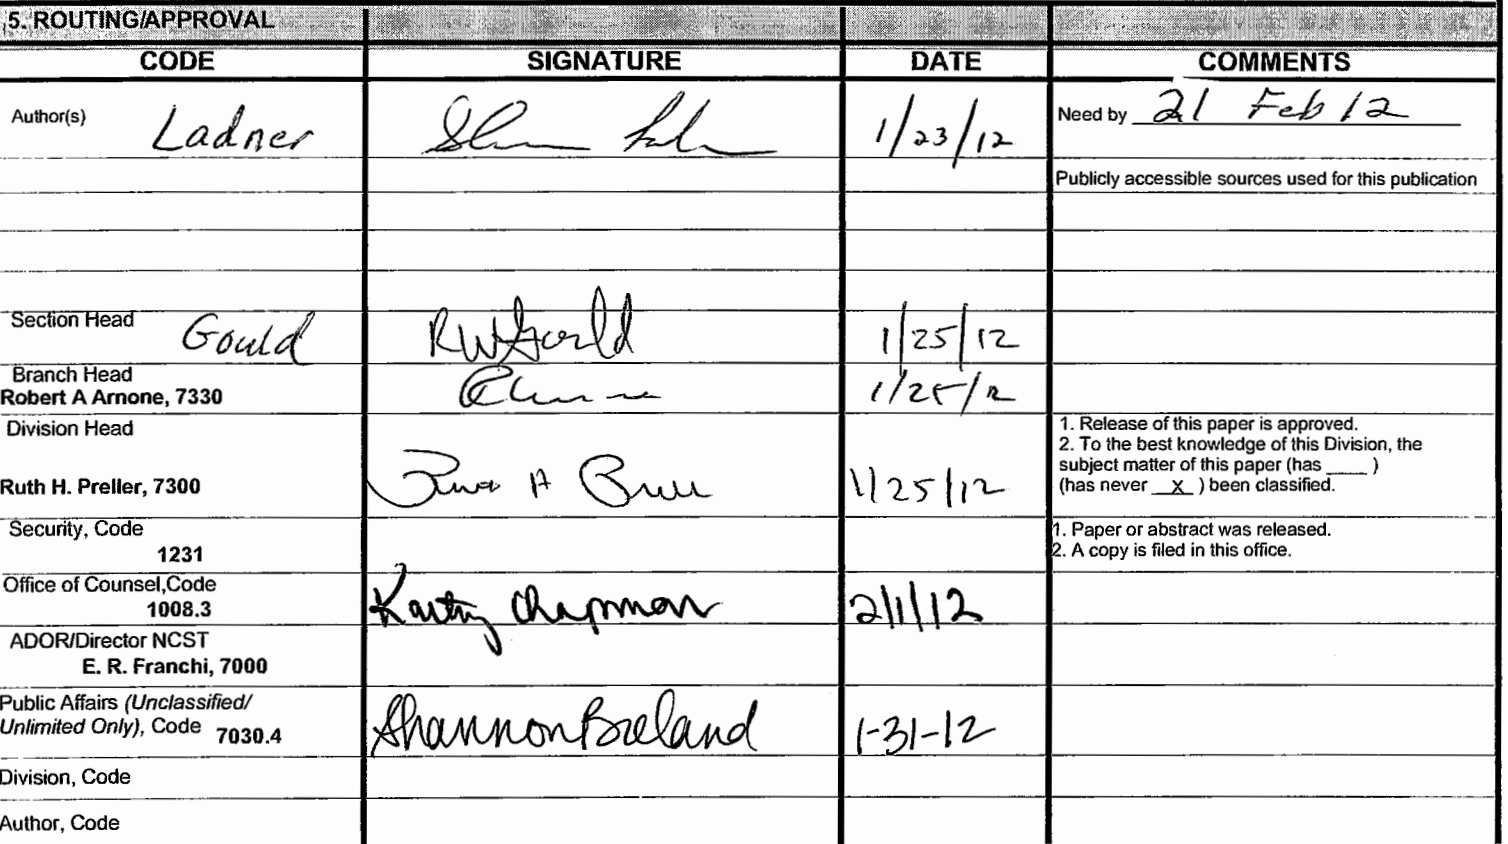 5. ROUTING/APPROVAL
CODE SIGNATURE DATE COMMENTS
Author(s) Ladner 1/23/12 Need by 21 Feb 12
Publicly accessible sources used for this publication
Section Head Gould RWGould 1/25/12
Branch Head
Robert A Arnone, 7330 1/25/12
Division Head
1. Release of this paper is approved.
2. To the best knowledge of this Division, the
subject matter of this paper (has ____ )
(has never X ) been classified.
Ruth H. Preller, 7300 1/25/12
Security, Code
1231
1. Paper or abstract was released.
2. A copy is filed in this office.
Office of Counsel,Code
1008.3 Kathy Chapman 2/1/12
ADOR/Director NCST
E. R. Franchi, 7000
Public Affairs (Unclassified/
Unlimited Only), Code 7030.4 Shannon Breland 1-31-12
Division, Code
Author, Code